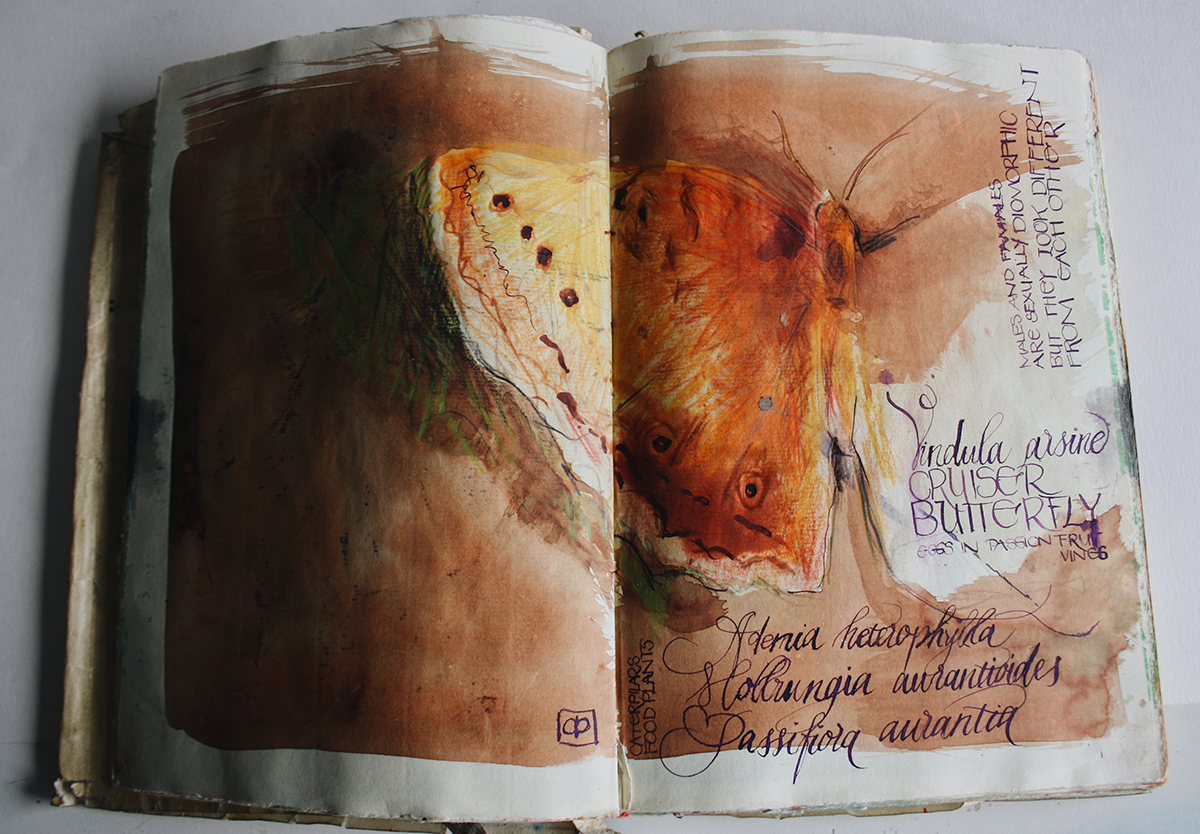 MALES AND FAMALES
ARE SEXUALLY DIOMORPHIC
BUT THEY LOOK DIFFERENT
FROM EACH OTHER
Vindula arsinoe
CRUISER
BUTTERFLY
EGGS IN PASSIONFRUIT
VINES
CATERPILARS
FOOD PLANTS
Ademia heterophylla
Hollrungia aurantioides
Passiflora aurantia